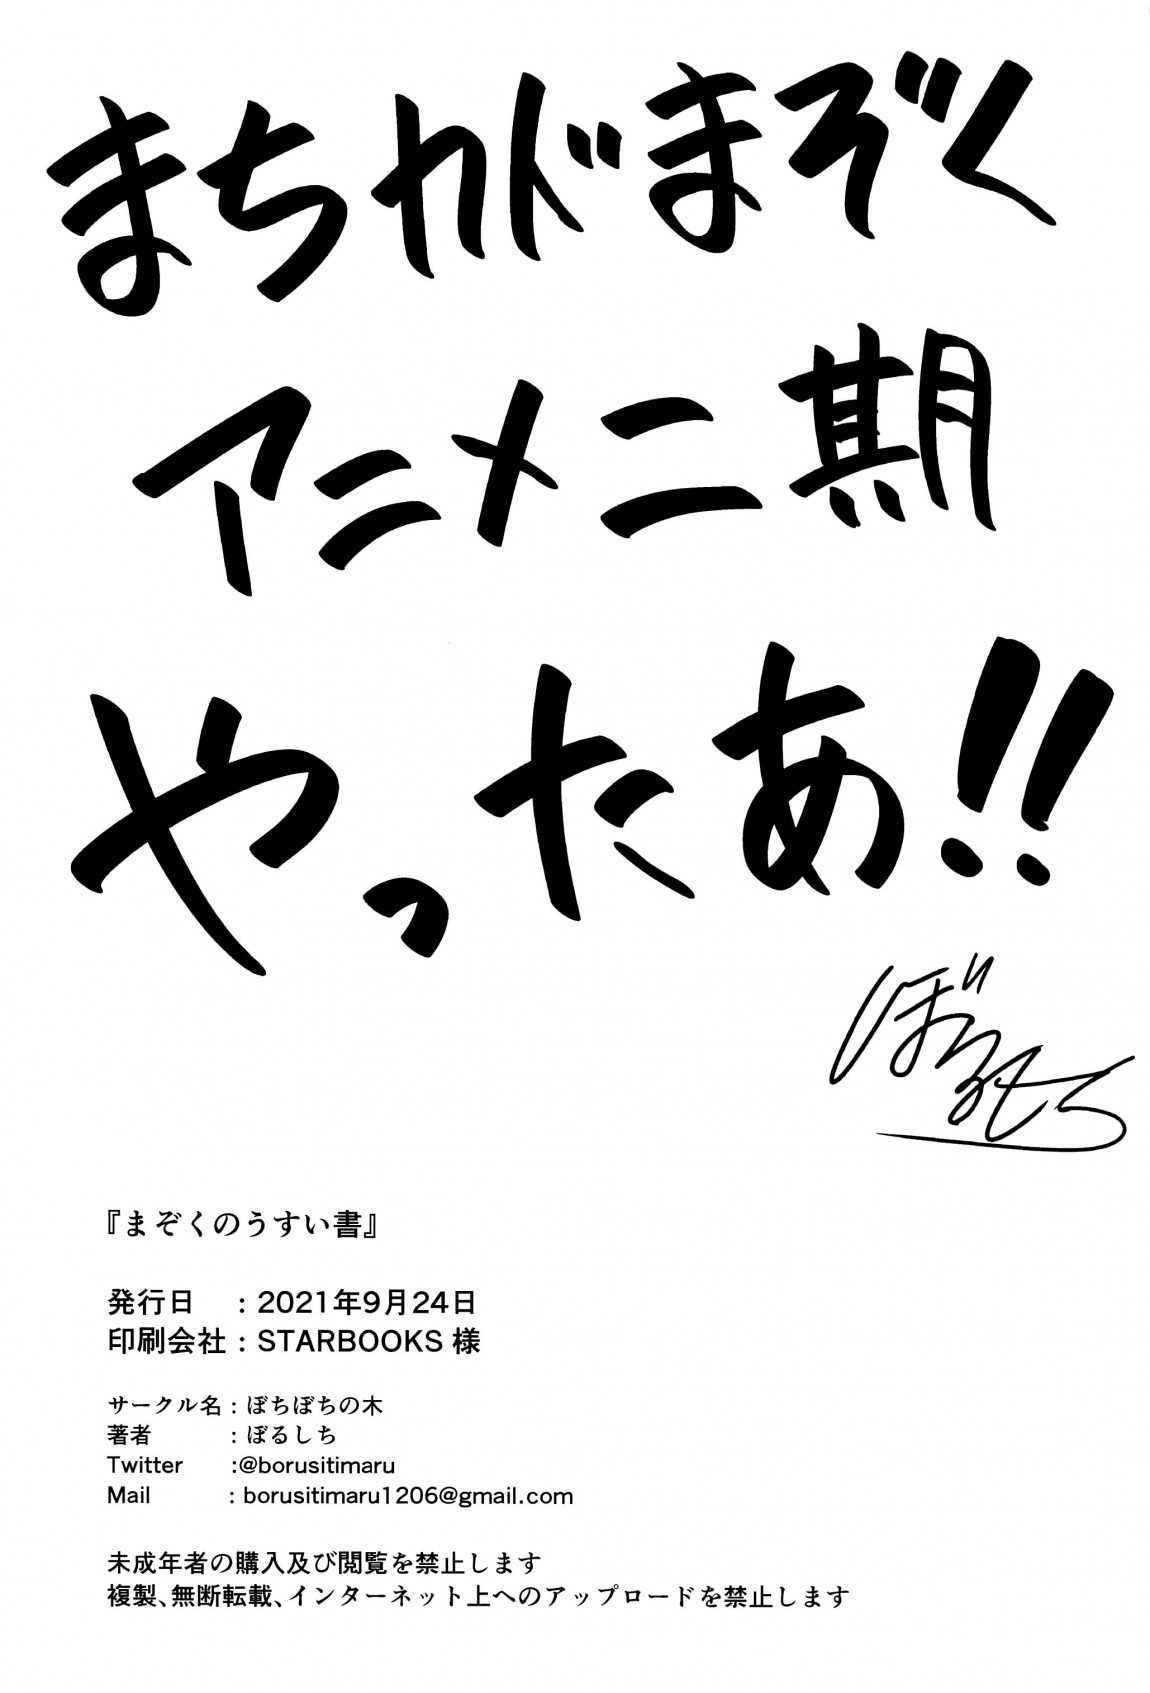 まちカドまぞく
アニメ二期
やったあ!!
ぼるしち
『まぞくのうすい書』
発行日　: 2021年9月24日
印刷会社 : STARBOOKS 様
サークル名 : ぼちぼちの木
著者　　　: ぼるしち
Twitter　　:@borusitimaru
Mail　　　: borusitimaru1206@gmail.com
未成年者の購入及び閲覧を禁止します
複製、無断転載、インターネット上へのアップロードを禁止します